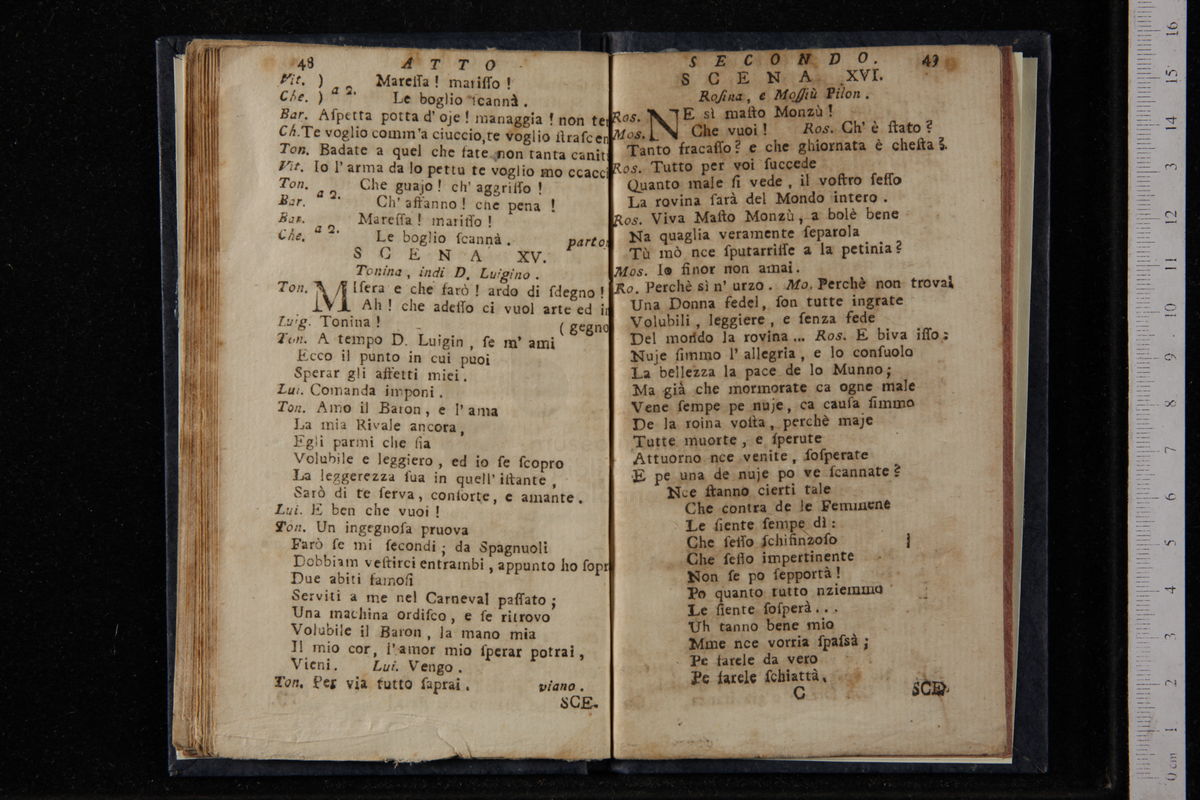 48 ATTO
Vit. ) a 2. Mareſſa! mariſſo!
Che. ) Le boglio ſcannà.
Bar. Aſpetta potta d'oje! managgia! non te
Ch. Te voglio comm'a ciuccio, te voglio ſtraſcen
Ton. Badate a quel che fate non tanta canit
Vit. Io l'arma da lo pettu te voglio mo ccacci
Ton. a 2. Che guajo! ch' aggriſſo!
Bar. Ch' affanno! che pena!
Bar. a 2. Mareſſa! mariſſo!
Che. Le boglio ſcannà. parto
SCENA XV.
Tonina, indi D. Luigino.
Ton. MIſera e che farò! ardo di ſdegno!
Ah! che adeſſo ci vuol arte ed in
Luig. Tonina! (gegno
Ton. A tempo D. Luigin, ſe m' ami
Ecco il punto in cui puoi
Sperar gli affetti miei.
Lui. Comanda imponi.
Ton. Amo il Baron, e l'ama
La mia Rivale ancora,
Egli parmi che ſia
Volubile e leggiero, ed io ſe ſcopro
La leggerezza ſua in quell'iſtante,
Sarò di te ſerva, conſorte, e amante.
Lui. E ben che vuoi!
Ton. Un ingegnoſa pruova
Farò ſe mi ſecondi; da Spagnuoli
Dobbiam veſtirci entrambi, appunto ho ſopr
Due abiti famoſi
Serviti a me nel Carneval paſſato;
Una machina ordiſco, e ſe ritrovo
Volubile il Baron, la mano mia
Il mio cor, l'amor mio ſperar potrai,
Vieni. Lui. Vengo.
Ton. Per via tutto ſaprai. viano.
SCE-
SECONDO. 49
SCENA XVI.
Roſina, e Moſſiù Pilon.
Ros. NE sì maſto Monzù!
Mos. Che vuoi! Ros. Ch' è ſtato?
Tanto fracaſſo? e che ghiornata è cheſta?
Ros. Tutto per voi ſuccede
Quanto male ſi vede, il voſtro ſeſſo
La rovina ſarà del Mondo intero.
Ros. Viva Maſto Monzù, a bolè bene
Na quaglia veramente ſeparola
Tù mò nce ſputarriſſe a la petinia?
Mos. Io finor non amai.
Ro. Perchè sì n' urzo. Mo. Perchè non trovai
Una Donna fedel, ſon tutte ingrate
Volubili, leggiere, e ſenza fede
Del mondo la rovina... Ros. E biva iſſo:
Nuje ſimmo l'allegria, e lo conſuolo
La bellezza la pace de lo Munno;
Ma già che mormorate ca ogne male
Vene ſempe pe nuje, ca cauſa ſimmo
De la roina voſta, perchè maje
Tutte muorte, e ſperute
Attuorno nce venite, ſoſperate
E pe una de nuje po ve ſcannate?
Nce ſtanno cierti tale
Che contra de le Femmene
Le ſiente ſempe dì:
Che ſeſſo ſchifinzoſo
Che ſeſſo impertinente
Non ſe po ſepportà!
Po quanto tutto nziemmo
Le ſiente ſoſperà...
Uh tanno bene mio
Mme nce vorria ſpaſsà;
Pe farele da vero
Pe farele ſchiattà.
C SCE-
0 cm 1 2 3 4 5 6 7 8 9 10 11 12 13 14 15 16